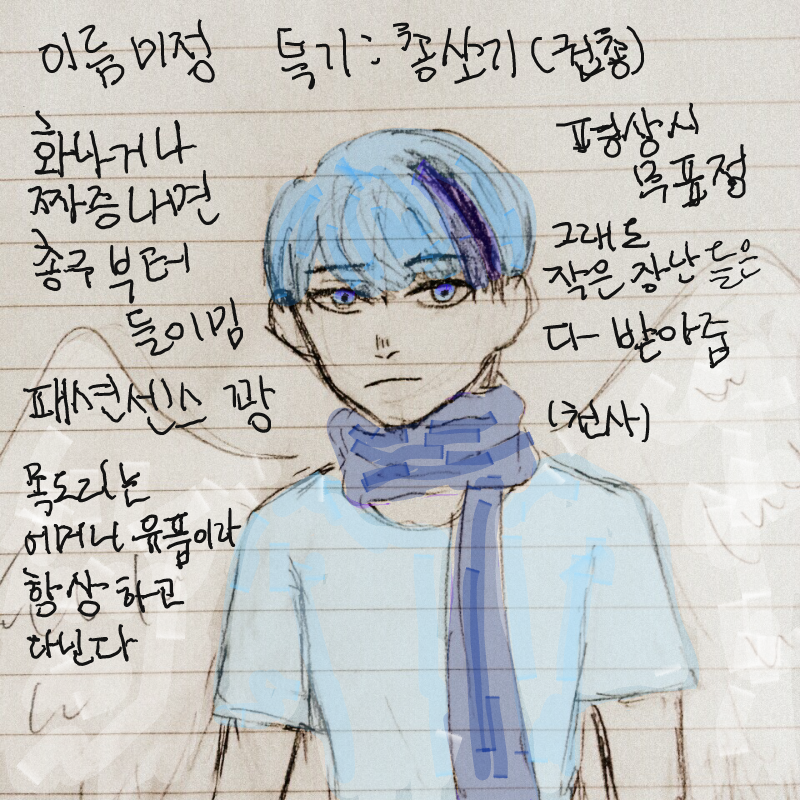 이름 미정
특기: 총쏘기 (권총)
화나거나
짜증나면
총구 부터
들이밈
패션센스 꽝
목도리는
어머니 유품이라
항상 하고
다닌다
평상시
무표정
그래도
작은 장난들은
다 받아줌
(천사)